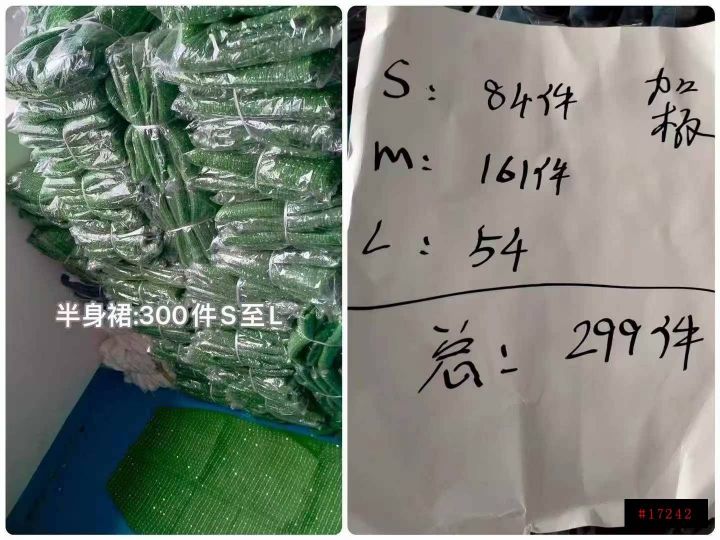 半身裙:300件S至L
S: 84件
加
板
m: 161件
L: 54
总: 299件
#17242